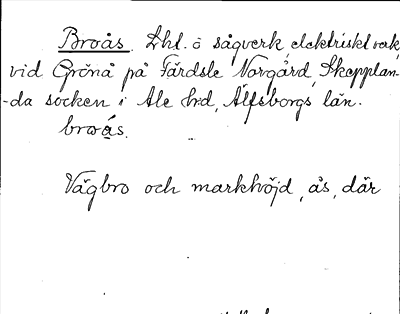 Broås. Lhl. o sågverk, elektriskt verk,
vid Grönå på Färdsle Norgård, Skepplan-
-da socken i Ale hrd, Älfsborgs län.
broás.
Vägbro och markhöjd, ås, där